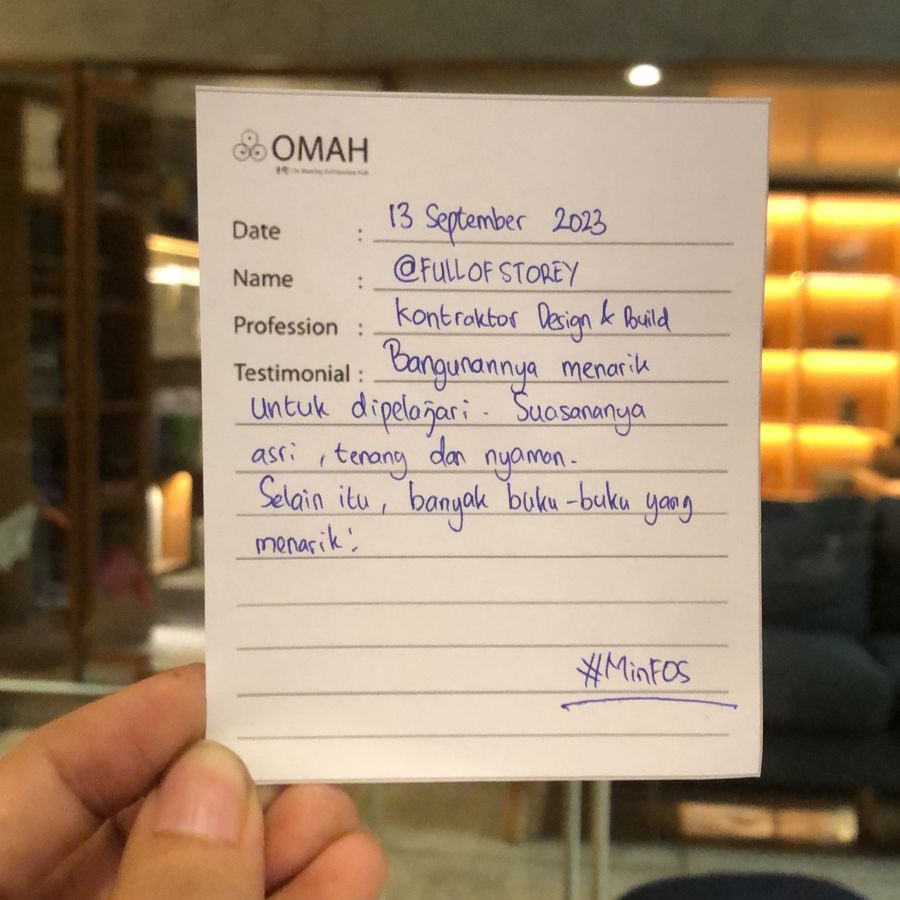 OMAH
Date : 13 September 2023
Name : @FULLOFSTOREY
Profession : Kontraktor Design & Build
Testimonial : Bangunannya menarik
untuk dipelajari. Suasananya
asri , tenang dan nyaman.
Selain itu, banyak buku-buku yang
menarik!
#MinFOS